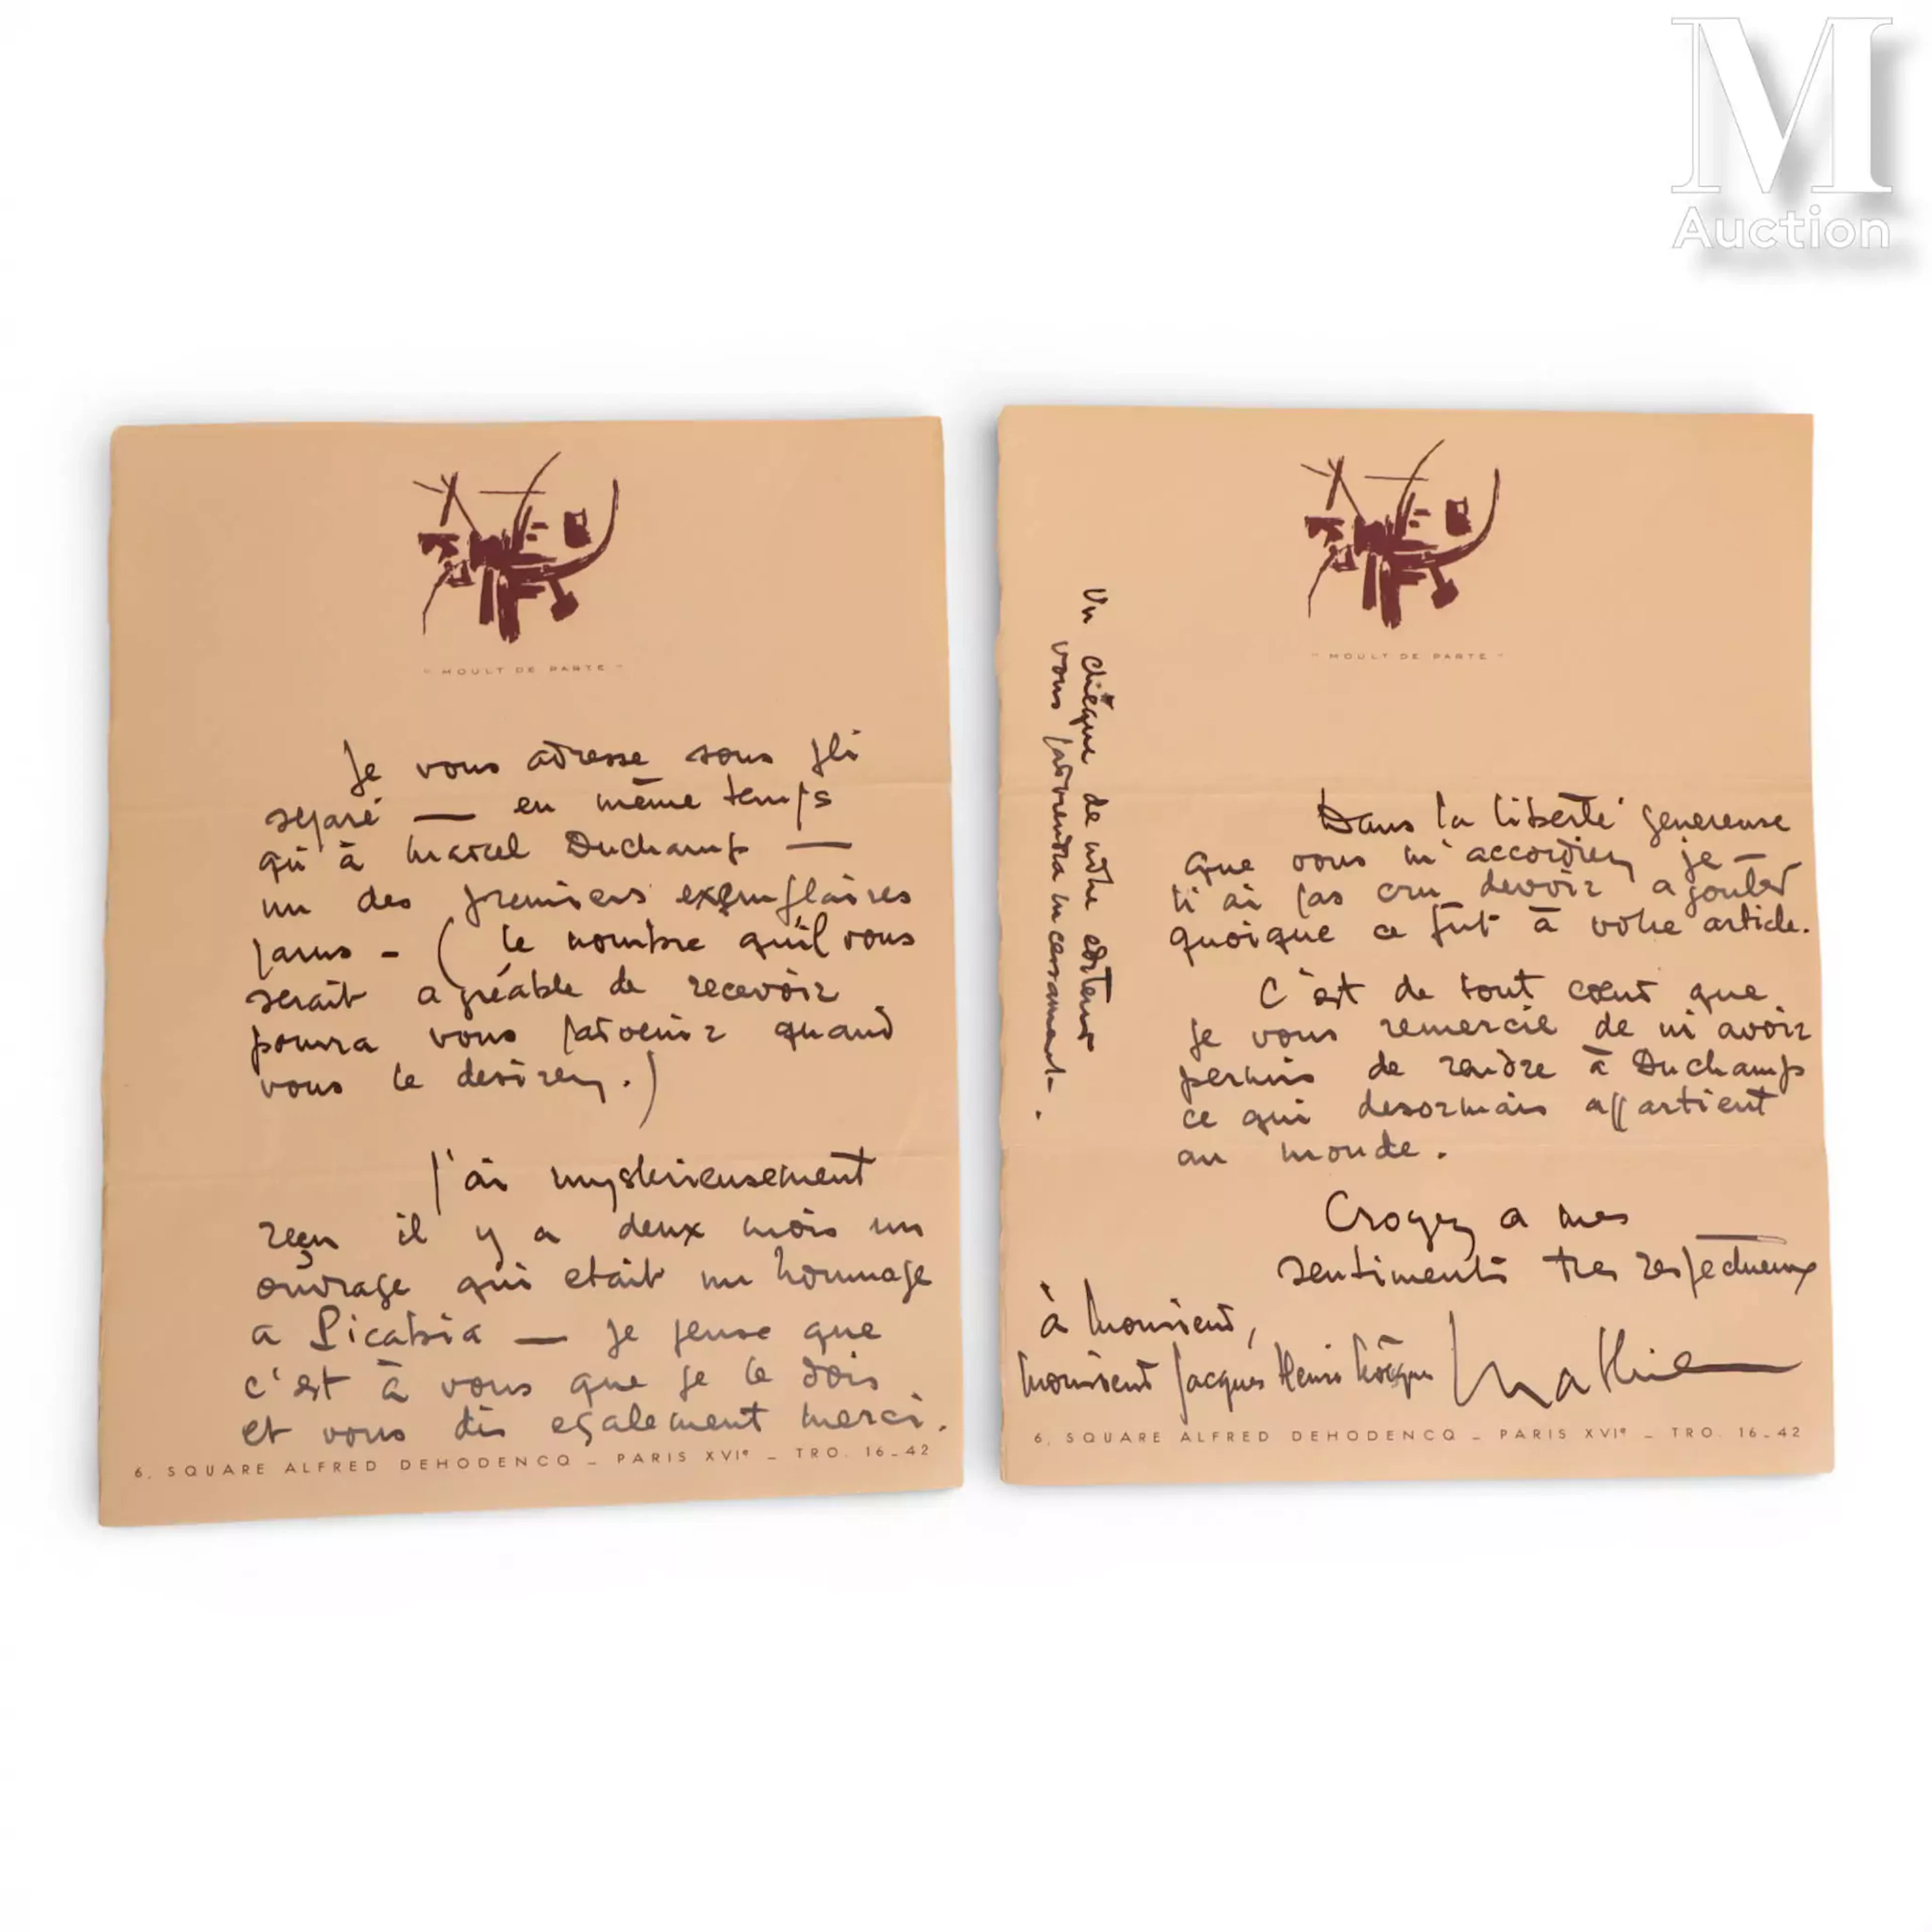 M
Auction
" MOULT DE PARTE "
Je vous adresse sous pli
séparé — en même temps
qu'à Marcel Duchamp —
un des premiers exemplaires
parus - ( le nombre qu'il vous
serait agréable de recevoir
pourra vous parvenir quand
vous le desirez . )
J'ai mysterieusement
reçu il y a deux mois un
ouvrage qui etait un hommage
a Picabia — je pense que
c'est à vous que je le dois
et vous dis egalement merci .
6, SQUARE ALFRED DEHODENCQ _ PARIS XVIe _ TRO. 16_42
" MOULT DE PARTE "
Un chèque de notre editeur
vous parviendra incessamment .
Dans la liberté genereuse
que vous m'accordiez je —
n'ai pas cru devoir ajouter
quoique ce fut à votre article.
C'est de tout cœur que
je vous remercie de m'avoir
permis de rendre à Duchamp
ce qui desormais appartient
au monde .
Croyez a mes
sentiments tres respectueux
à Monsieur,
Monsieur Jacques Henri
Mathieu
6, SQUARE ALFRED DEHODENCQ _ PARIS XVIe _ TRO. 16_42